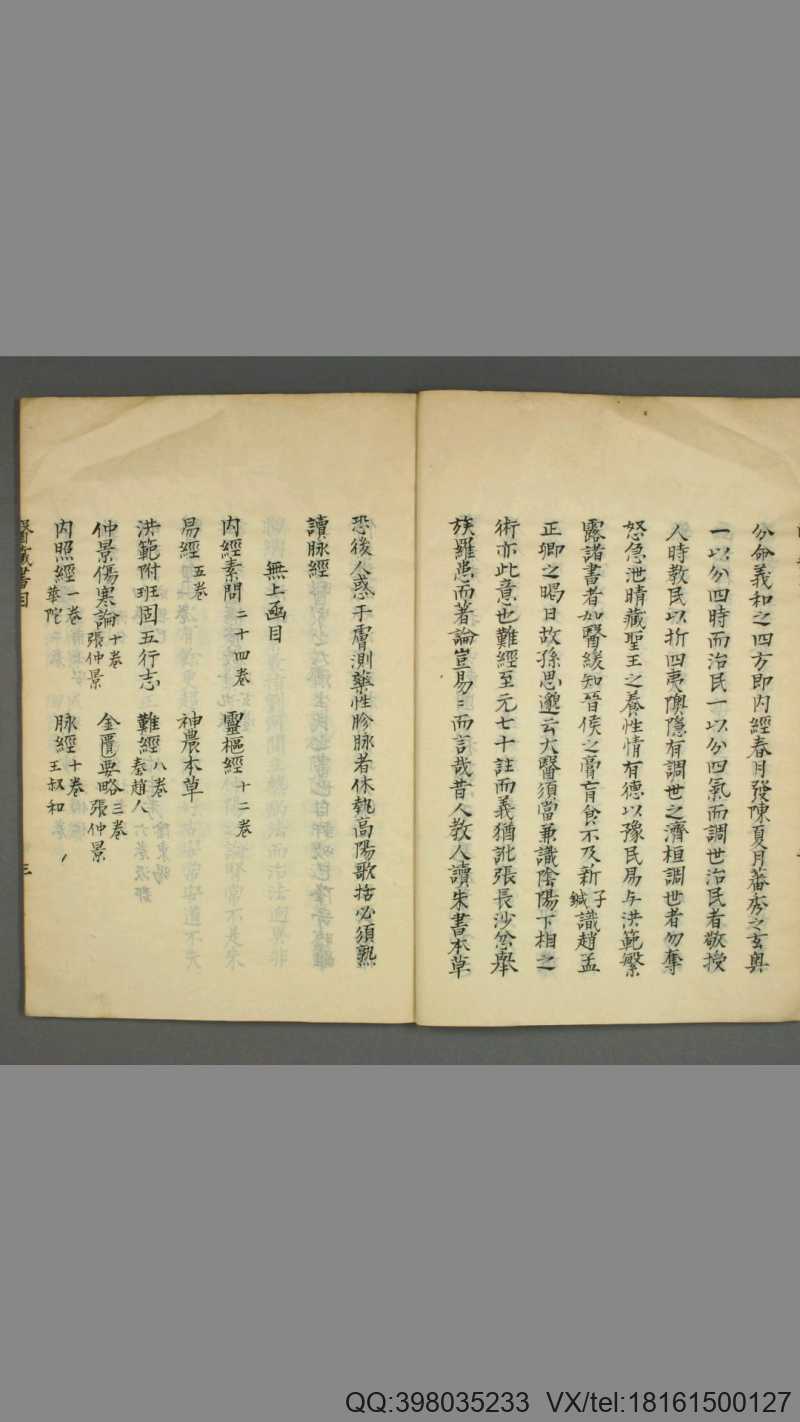 分命羲和之四方即内經春月發陳夏月蕃秀之玄奥
一以分四時而治民一以分四氣而調世治民者敬授
人時教民以折四夷隩隱有調世之濟桓調世者勿奪
怒急泄晴藏聖王之養性情有德以豫民易与洪範繁
露諸書者如醫緩知晉侯之膏肓食不及新子鍼識趙孟
正卿之暍日故孫思邈云大醫須當兼識陰陽下相之
術亦此意也難經至元七十註而義猶訛張長沙忿舉
族羅患而著論豈易〻而言哉昔人教人讀朱書本草
恐後人惑于膚測藥性胗脉者休執高陽歌括必須熟
讀脉經
無上函目
内經素問 二十四卷 靈樞經 十二卷
易經 五卷 神農本草
洪範附班固五行志 難經 八卷 秦越人
仲景傷寒論 十卷 張仲景 金匱要略 三卷 張仲景
内照經 一卷 華陀 脉經 十卷 王叔和
醫藏書目 三
QQ:398035233 VX/tel:18161500127